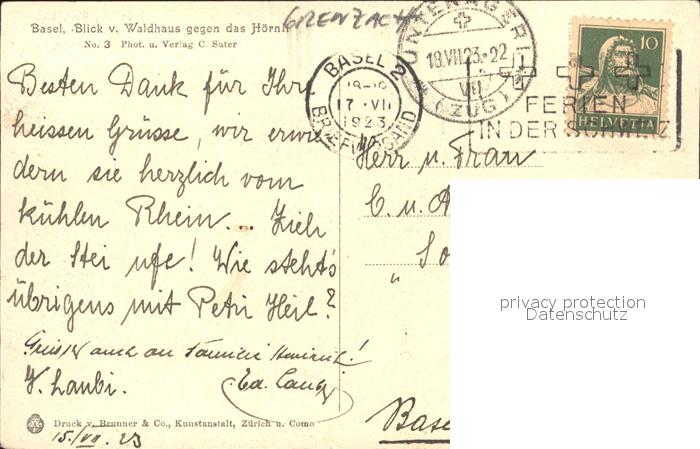 Basel, Blick v. Waldhaus gegen das Hörnli
GRENZACH
No. 3 Phot. u. Verlag C. Suter
UNTENÄGERI
18.VII.23.-22
VII
(ZUG)
BASEL 2
17.VII
1923
10
HELVETIA
FERIEN
IN DER SCHWEIZ
Besten Dank für Ihre
heissen Grüsse, wir erwi-
dern sie herzlich vom
kühlen Rhein... Zieh
der Stei ufe! Wie steht's
übrigens mit Petri Heil?
Grüsse auch an Familie
Herr u. Frau
C. u. A
So
"
Base
Druck v. Brunner & Co., Kunstanstalt, Zürich u. Como
15./VII. 23
privacy protection
Datenschutz